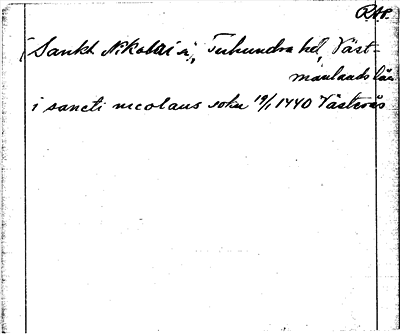 RAp.
[Sankt Nikolai s:n, Tuhundra hd, Väst-
manlands län
i sancti nicolaus sokn 19/1 1440 Västerås